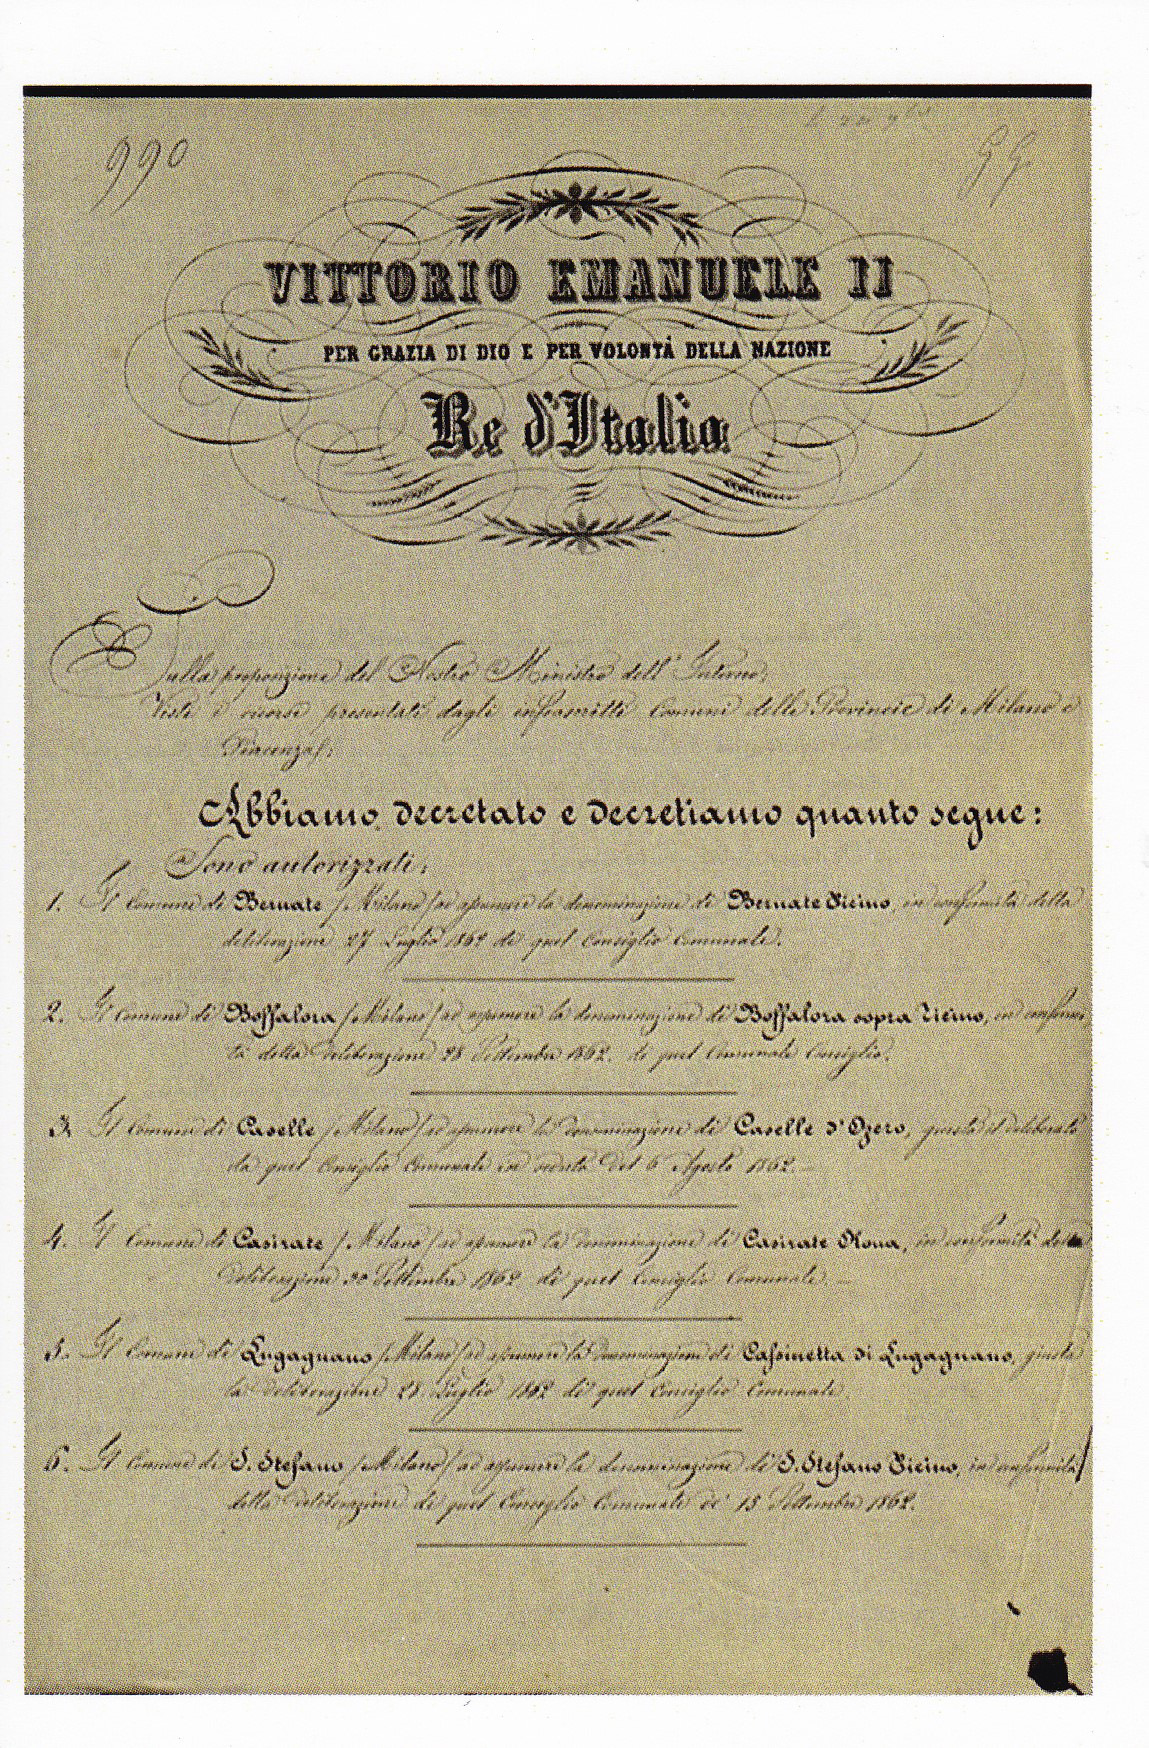 990
VITTORIO EMANUELE II
PER GRAZIA DI DIO E PER VOLONTÀ DELLA NAZIONE
Re d'Italia
Sulla proposizione del Nostro Ministro dell'Interno;
Visti i ricorsi presentati dagli infrascritti Comuni delle Provincie di Milano e
Piacenza;
Abbiamo decretato e decretiamo quanto segue:
Sono autorizzati:
1. Il Comune di Bernate /Milano/ ad assumere la denominazione di Bernate Ticino, in conformità della
deliberazione 27 Luglio 1862 di quel Consiglio Comunale.
2. Il Comune di Boffalora /Milano/ ad assumere la denominazione di Boffalora sopra Ticino, in conformi-
tà della deliberazione 28 Settembre 1862. di quel Comunale Consiglio.
3. Il Comune di Caselle /Milano/ ad assumere la denominazione di Caselle d'Ozero, giusta il deliberato
da quel Consiglio Comunale in seduta del 6 Agosto 1862.—
4. Il Comune di Casirate /Milano/ ad assumere la denominazione di Casirate Olona, in conformità della
deliberazione 30 Settembre 1862 di quel Consiglio Comunale.—
5. Il Comune di Lugagnano /Milano/ ad assumere la denominazione di Cassinetta di Lugagnano, giusta
la deliberazione 28 Luglio 1862 di quel Consiglio Comunale.
6. Il Comune di S. Stefano /Milano/ ad assumere la denominazione di S. Stefano Ticino, in conformità
della deliberazione di quel Consiglio Comunale de' 15 Settembre 1862.